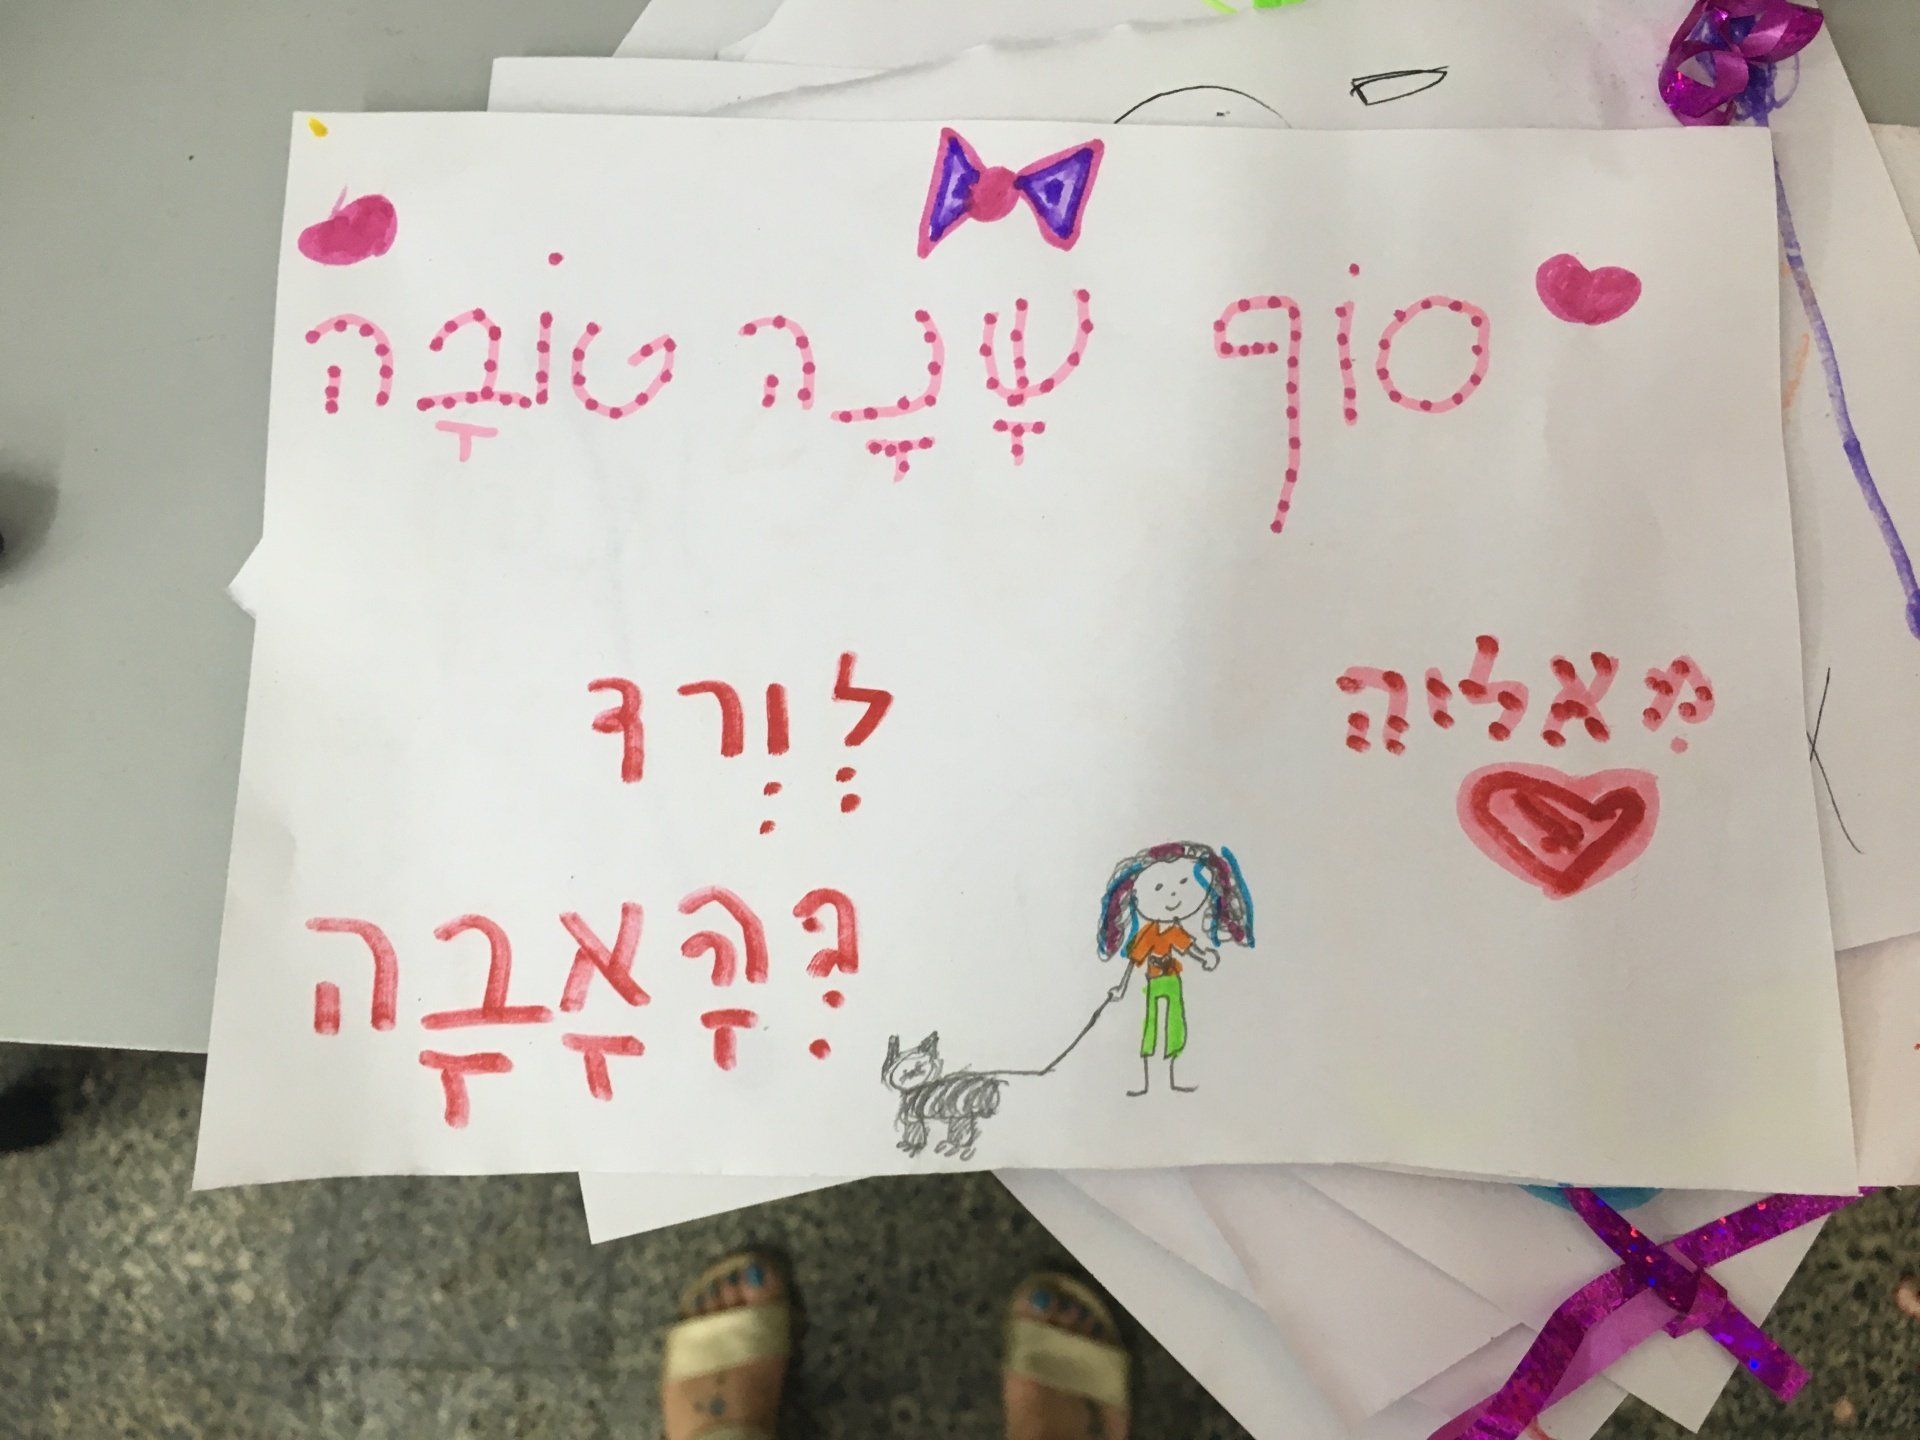 סוֹף שָנָה טוֹבָה
מִאליה
לְוְרד
בְּהָאָבָה